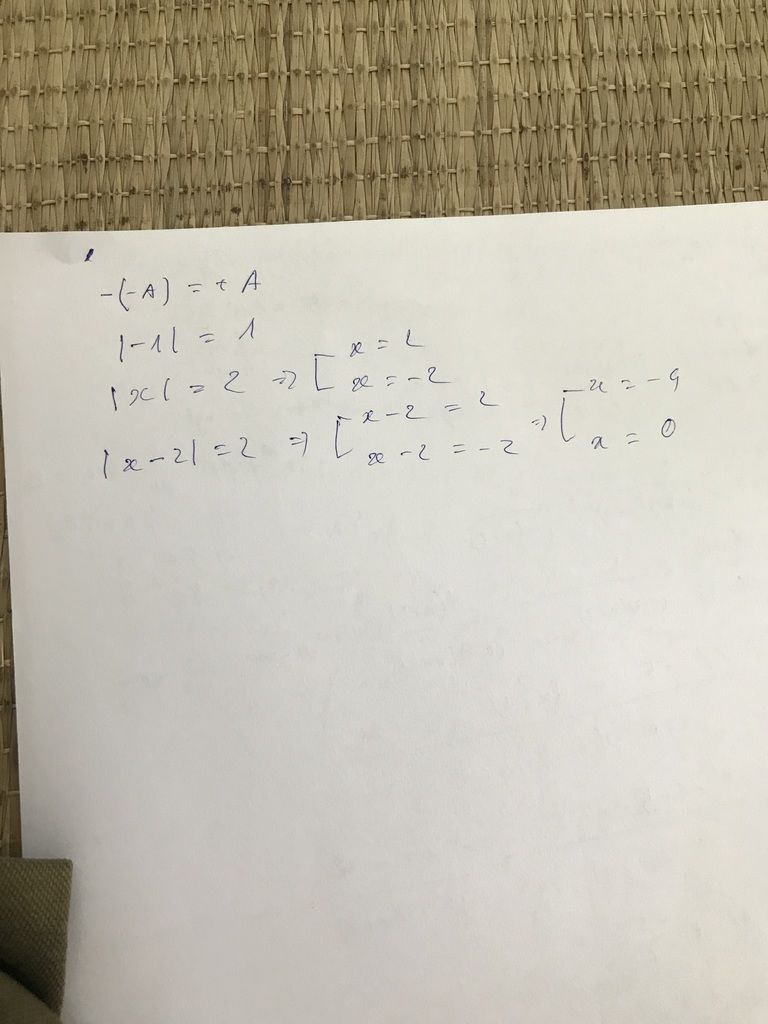 -(-A) = + A
|-1| = 1
|x| = 2 => [ x = 2
x = -2
|x-2| = 2 => [ x-2 = 2
x-2 = -2
=> [ x = -4
x = 0